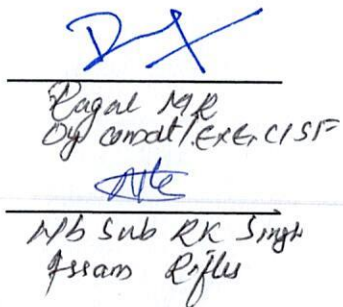 Ragal MR
Dy comdt/Exe, CISF
Nb Sub RK Singh
Assam Rifles